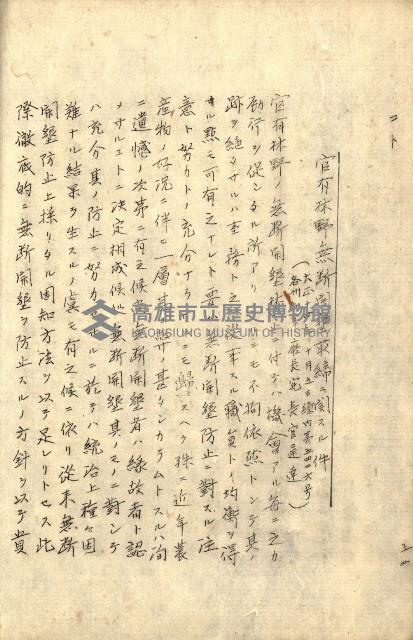 官有林野無斷開墾取締ニ關スル件
大正 十月五日總內第三四二六号
各州 廳長宛長官通達
官有林野ノ無斷開墾 付テハ機會アル每ニ之カ
励行ヲ促シタル所アリ ニモ不拘依然トシテ其ノ
跡ヲ絕タサルハ 語ト 來スル職員ト ノ均衡ヲ得
サル點モ可有之ナレト 要 無斷開墾防止ニ對スル注
意ト努力トノ充分ナラ ニモ歸スヘク殊ニ近年農
產物ノ好況ニ伴ヒ一層甚 甚タシカラムトスルハ洵
ニ遺憾ノ次第ニ有之候 無斷開墾者ハ緣故者ト認
メサルコトニ決定相成候ル 無斷開墾其ノモノニ對シテ
ハ充分其ノ防止ニ努力 ルニ於テハ統治上種々困
難ナル結果ヲ生スルノ虞モ有之候ニ依リ從來無斷
開墾防止上採リタル周知方法ヲ以テ足レリトセス此
際徹底的ニ無斷開墾ヲ防止スルノ方針ヲ以テ貴
高雄市立歷史博物館
KAOHSIUNG MUSEUM OF HISTORY